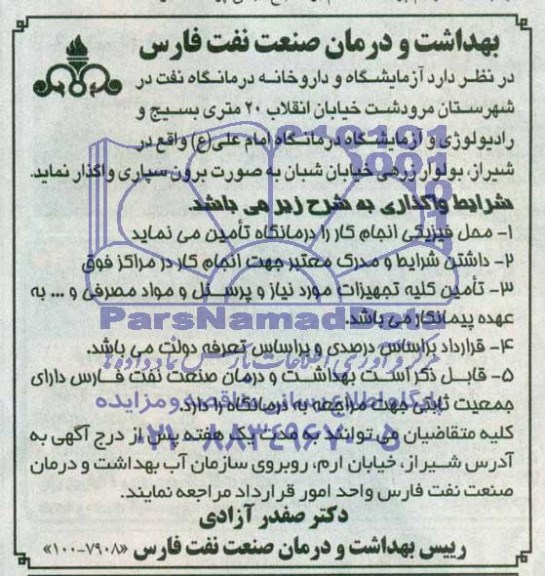 بهداشت و درمان صنعت نفت فارس
در نظر دارد آزمایشگاه و داروخانه درمانگاه نفت در
شهرستان مرودشت خیابان انقلاب ۲۰ متری بسیج و
رادیولوژی و آزمایشگاه درمانگاه امام علی(ع) واقع در
شیراز، بولوار زرهی خیابان شبان به صورت برون سپاری واگذار نماید.
شرایط واگذاری به شرح زیر می باشد
۱- محل فیزیکی انجام کار را درمانگاه تأمین می نماید
۲- داشتن شرایط و مدرک معتبر جهت انجام کار در مراکز فوق
۳- تأمین کلیه تجهیزات مورد نیاز و پرسنل و مواد مصرفی و ... به
عهده پیمانکار می باشد.
ParsNamadData
۴- قرارداد براساس درصدی و براساس تعرفه دولت می باشد.
۵- قابل ذکر است بهداشت و درمان صنعت نفت فارس دارای
جمعیت ثابتی جهت مراجعه به درمانگاه را دارد.
کلیه متقاضیان می توانند به مدت یک هفته پس از درج آگهی به
۰۲۱-۸۸۳۴۹۶۷۰-۵
آدرس شیراز، خیابان ارم، روبروی سازمان آب بهداشت و درمان
صنعت نفت فارس واحد امور قرارداد مراجعه نمایند.
دکتر صفدر آزادی
رییس بهداشت و درمان صنعت نفت فارس «۷۹۰۸-۱۰۰»